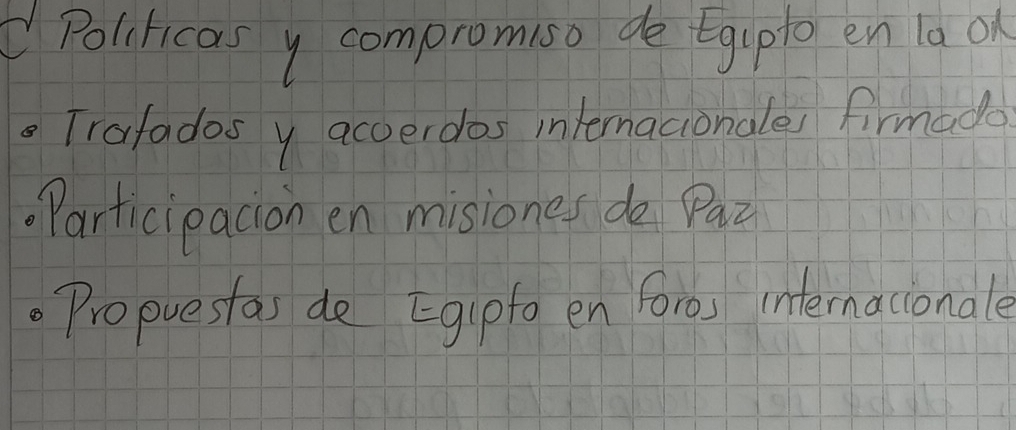 Políticas y compromiso de Egipto en la
• Tratados y acoerdos internacionales firmados
• Participación en misiones de Paz
• Propuestas de Egipto en foros internacionale